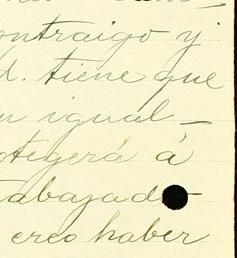 ontraigo y
d. tiene que
igual-
otegerá á
abajad-
creo haber